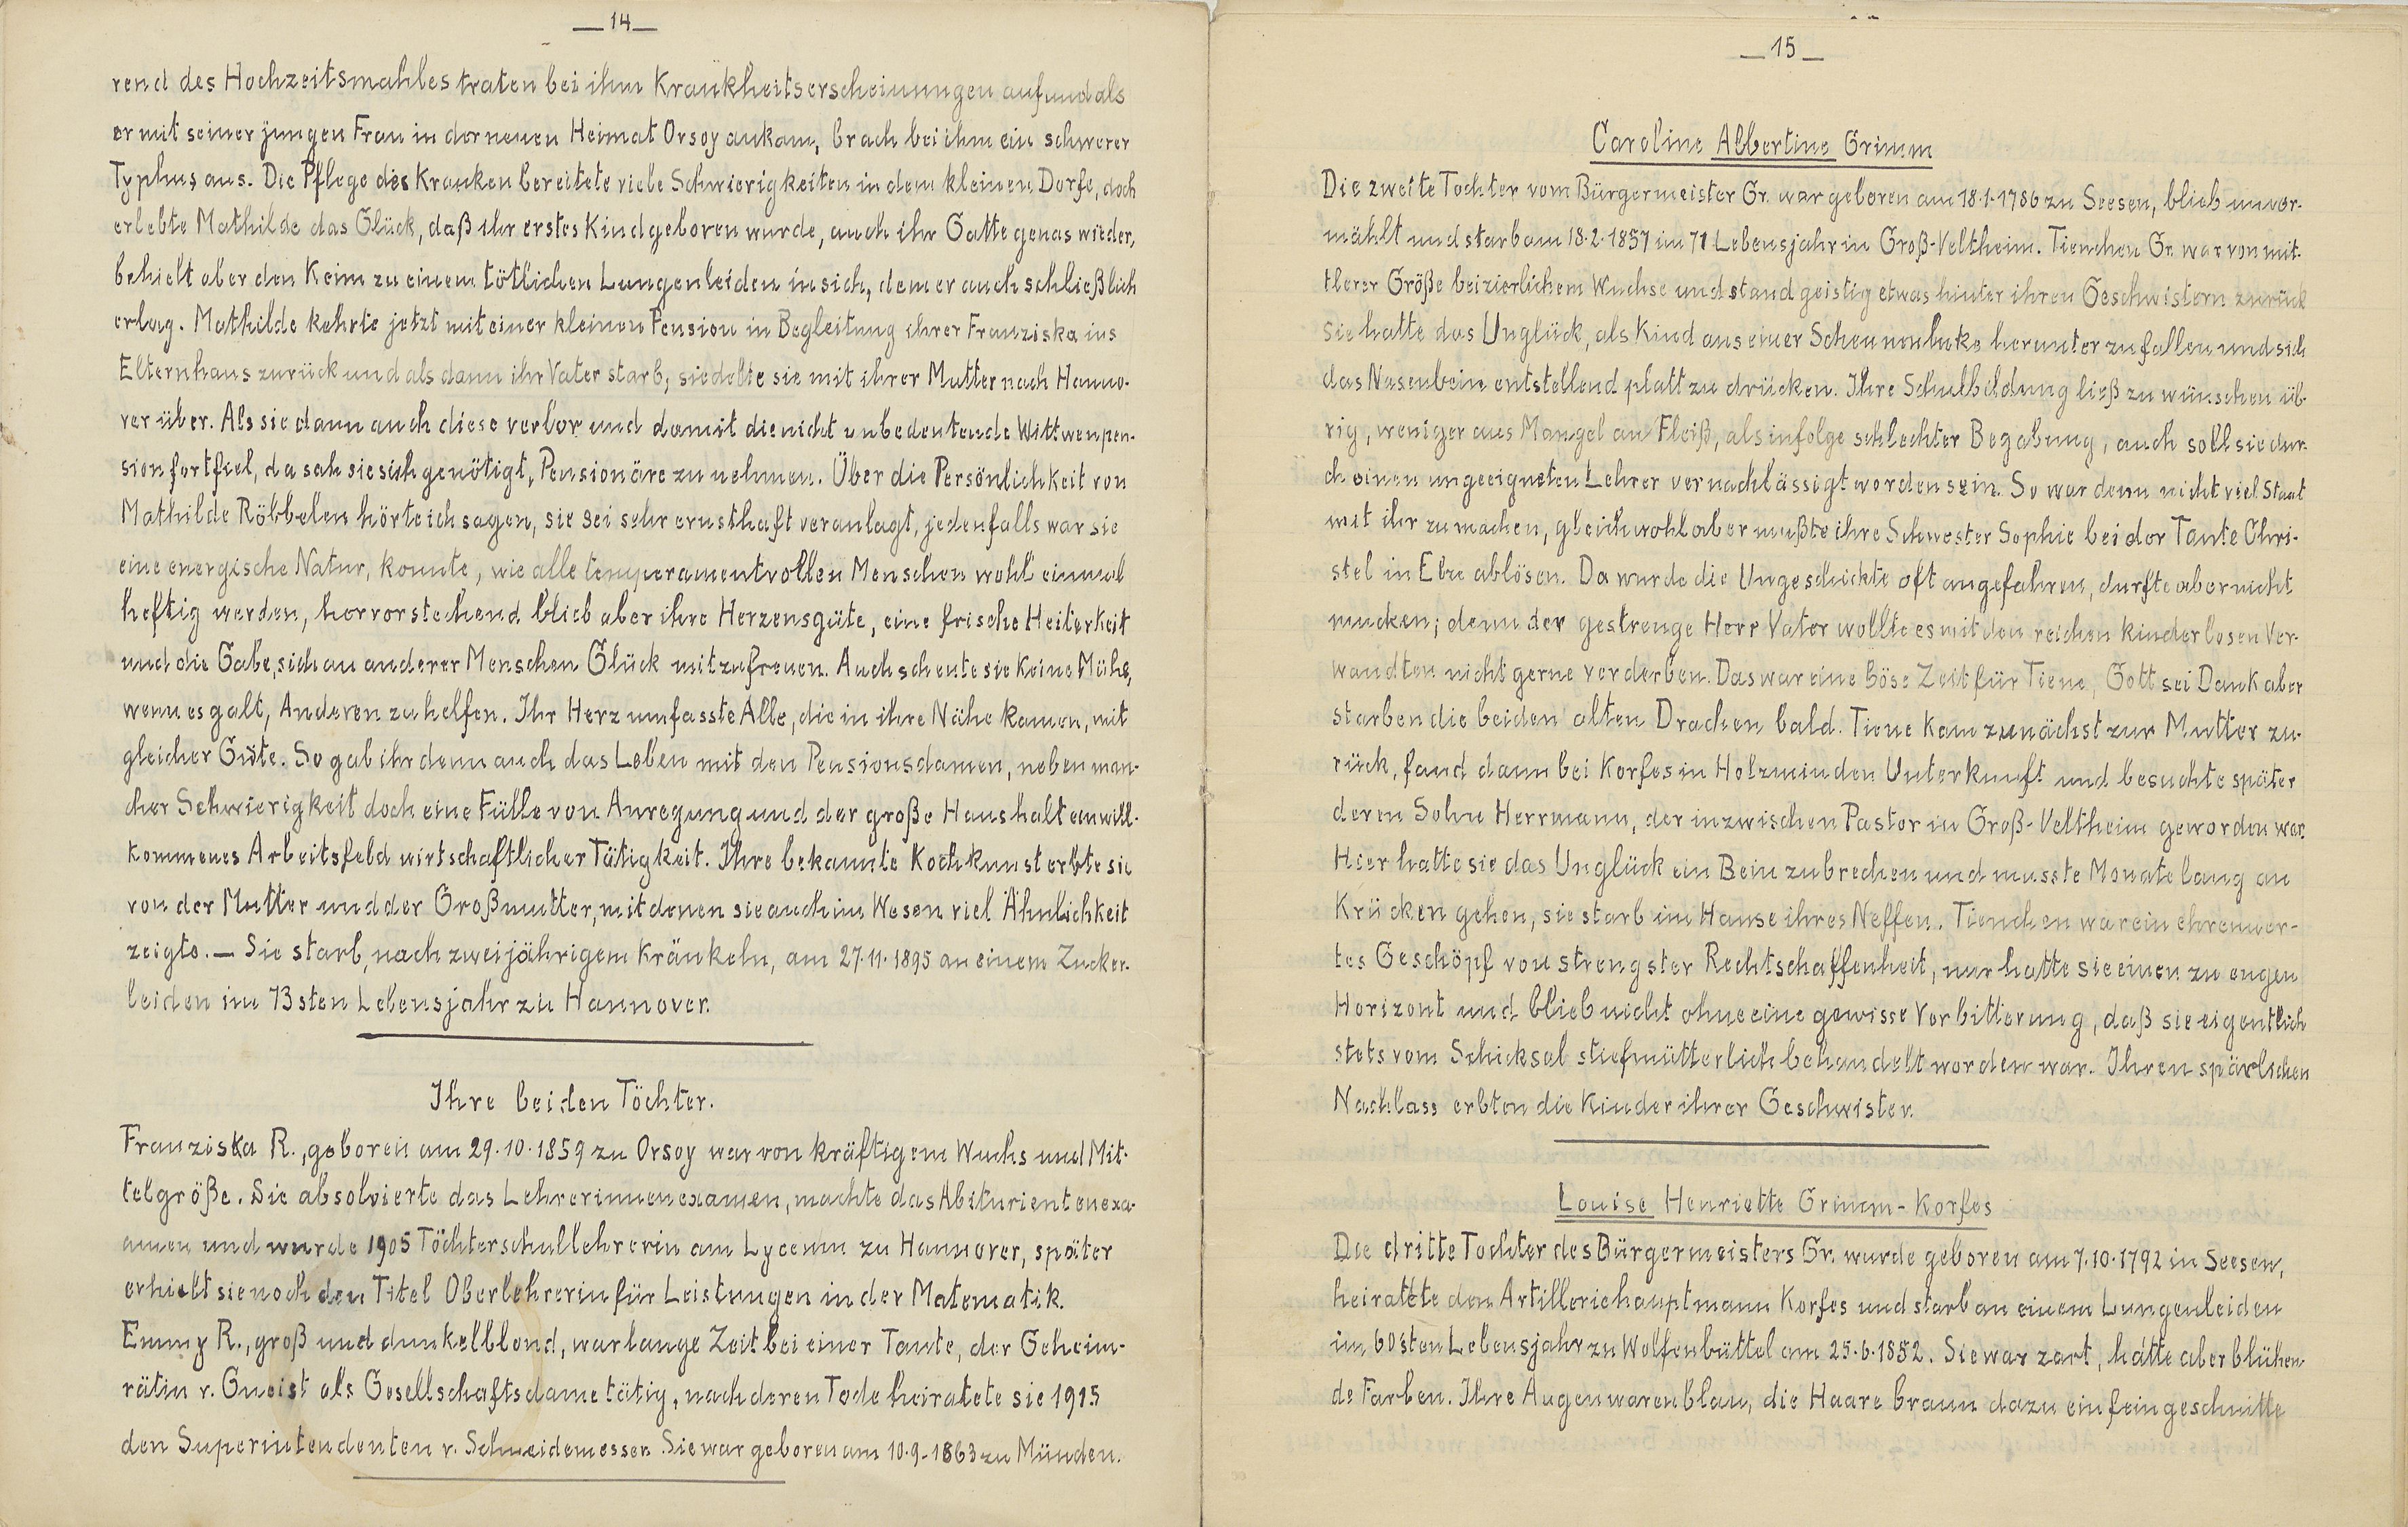 — 14 —
rend des Hochzeitsmahles traten bei ihm Krankheitserscheinungen auf und als
er mit seiner jungen Frau in der neuen Heimat Orsoy ankam, brach bei ihm ein schwerer
Typhus aus. Die Pflege des Kranken bereitete viele Schwierigkeiten in dem kleinen Dorfe, doch
erlebte Mathilde das Glück, daß ihr erstes Kind geboren wurde, auch ihr Gatte genas wieder,
behielt aber den Keim zu einem tötlichen Lungenleiden in sich, dem er auch schließlich
erlag. Mathilde kehrte jetzt mit einer kleinen Pension in Begleitung ihrer Franziska ins
Elternhaus zurück und als dann ihr Vater starb, siedelte sie mit ihrer Mutter nach Hanno-
ver über. Als sie dann auch diese verlor und damit die nicht unbedeutende Wittwenpen-
sion fortfiel, da sah sie sich genötigt, Pensionäre zu nehmen. Über die Persönlichkeit von
Mathilde Röbbelen hörte ich sagen, sie sei sehr ernsthaft veranlagt, jedenfalls war sie
eine energische Natur, konnte, wie alle temperamentvollen Menschen wohl einmal
heftig werden, hervorstechend blieb aber ihre Herzensgüte, eine frische Heiterkeit
und die Gabe, sich an anderer Menschen Glück mitzufreuen. Auch scheute sie keine Mühe,
wenn es galt, Anderen zu helfen. Ihr Herz umfasste Alle, die in ihre Nähe kamen, mit
gleicher Güte. So gab ihr denn auch das Leben mit den Pensionsdamen, neben man-
cher Schwierigkeit doch eine Fülle von Anregung und der große Haushalt ein will-
kommenes Arbeitsfeld wirtschaftlicher Tätigkeit. Ihre bekannte Kochkunst erbte sie
von der Mutter und der Großmutter, mit denen sie auch im Wesen viel Ähnlichkeit
zeigte. — Sie starb, nach zweijährigem Kränkeln, am 27.11.1895 an einem Zucker-
leiden im 73sten Lebensjahr zu Hannover.
Ihre beiden Töchter.
Franziska R., geboren am 29.10.1859 zu Orsoy war von kräftigem Wuchs und Mit-
telgröße. Sie absolvierte das Lehrerinnenexamen, machte das Abiturientenexa-
amen und wurde 1905 Töchterschullehrerin am Lyceum zu Hannover, später
erhielt sie noch den Titel Oberlehrerin für Leistungen in der Matematik.
Emmy R., groß und dunkelblond, war lange Zeit bei einer Tante, der Geheim-
rätin v. Gneist als Gesellschaftsdame tätig, nach deren Tode heiratete sie 1915
den Superintendenten v. Schneidemesser. Sie war geboren am 10.9.1863 zu Münden.
— 15 —
Caroline Albertine Grimm
Die zweite Tochter vom Bürgermeister Gr. war geboren am 18.1.1786 zu Seesen, blieb unver-
mählt und starb am 18.2.1857 im 71 Lebensjahr in Groß-Veltheim. Tienchen Gr. war von mit-
tlerer Größe bei zierlichem Wuchse und stand geistig etwas hinter ihren Geschwistern zurück
Sie hatte das Unglück, als Kind aus einer Scheunenluke herunter zu fallen und sich
das Nasenbein entstellend platt zu drücken. Ihre Schulbildung ließ zu wünschen üb-
rig, weniger aus Mangel an Fleiß, als infolge schlechter Begabung, auch soll sie dur-
ch einen ungeeigneten Lehrer vernachlässigt worden sein. So war denn nicht viel Staat
mit ihr zu machen, gleichwohl aber mußte ihre Schwester Sophie bei der Tante Chri-
stel in Elze ablösen. Da wurde die Ungeschickte oft angefahren, durfte aber nicht
mucken; denn der gestrenge Herr Vater wollte es mit den reichen kinderlosen Ver-
wandten nicht gerne verderben. Das war eine böse Zeit für Tiene, Gott sei Dank aber
starben die beiden alten Drachen bald. Tiene kam zunächst zur Mutter zu-
rück, fand dann bei Korfes in Holzminden Unterkunft und besuchte später
deren Sohn Herrmann, der inzwischen Pastor in Groß-Veltheim geworden war.
Hier hatte sie das Unglück ein Bein zu brechen und musste Monate lang an
Krücken gehen, sie starb im Hause ihres Neffen. Tienchen war ein ehrenwer-
tes Geschöpf von strengster Rechtschaffenheit, nur hatte sie einen zu engen
Horizont und blieb nicht ohne eine gewisse Verbitterung, daß sie eigentlich
stets vom Schicksal stiefmütterlich behandelt worden war. Ihren spärlichen
Nachlass erbten die Kinder ihrer Geschwister.
Louise Henriette Grimm-Korfes
Die dritte Tochter des Bürgermeisters Gr. wurde geboren am 7.10.1792 in Seesen,
heiratete den Artilleriehauptmann Korfes und starb an einem Lungenleiden
im 60sten Lebensjahr zu Wolfenbüttel am 25.6.1852. Sie war zart, hatte aber blühen-
de Farben. Ihre Augen waren blau, die Haare braun dazu ein fein geschnitte